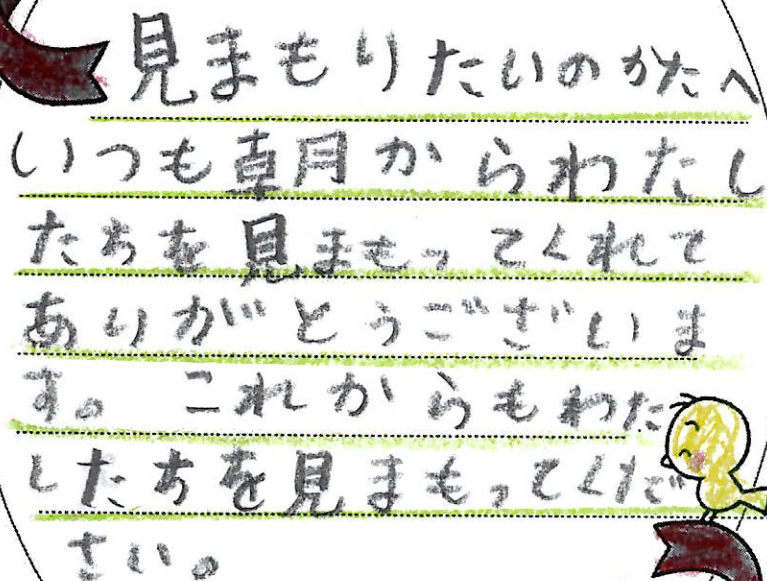 見まもりたいのかたへ
いつも朝からわたし
たちを見まもってくれて
ありがとうございま
す。これからもわた
したちを見まもってくだ
さい。